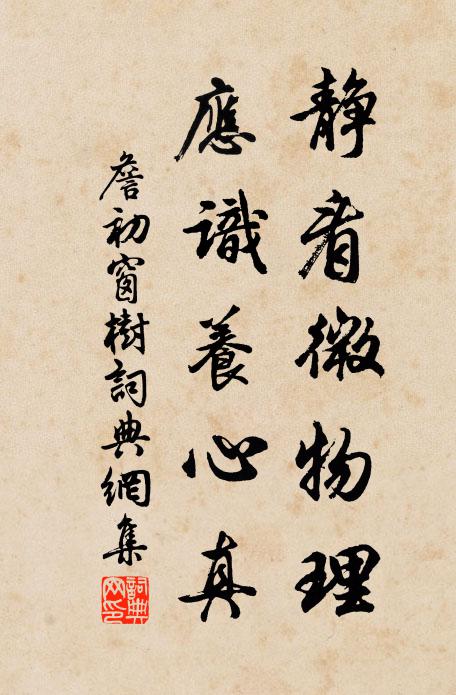 静看微物理
應識養心真
詹初窗樹詞典網集
詞典
网印